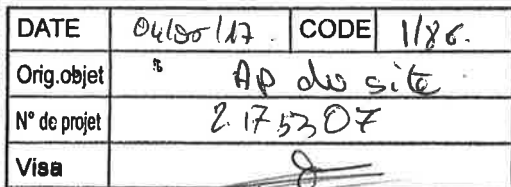 DATE 04/ /17. CODE 1/86.
Orig.objet AP du site
N° de projet 2.175307
Visa